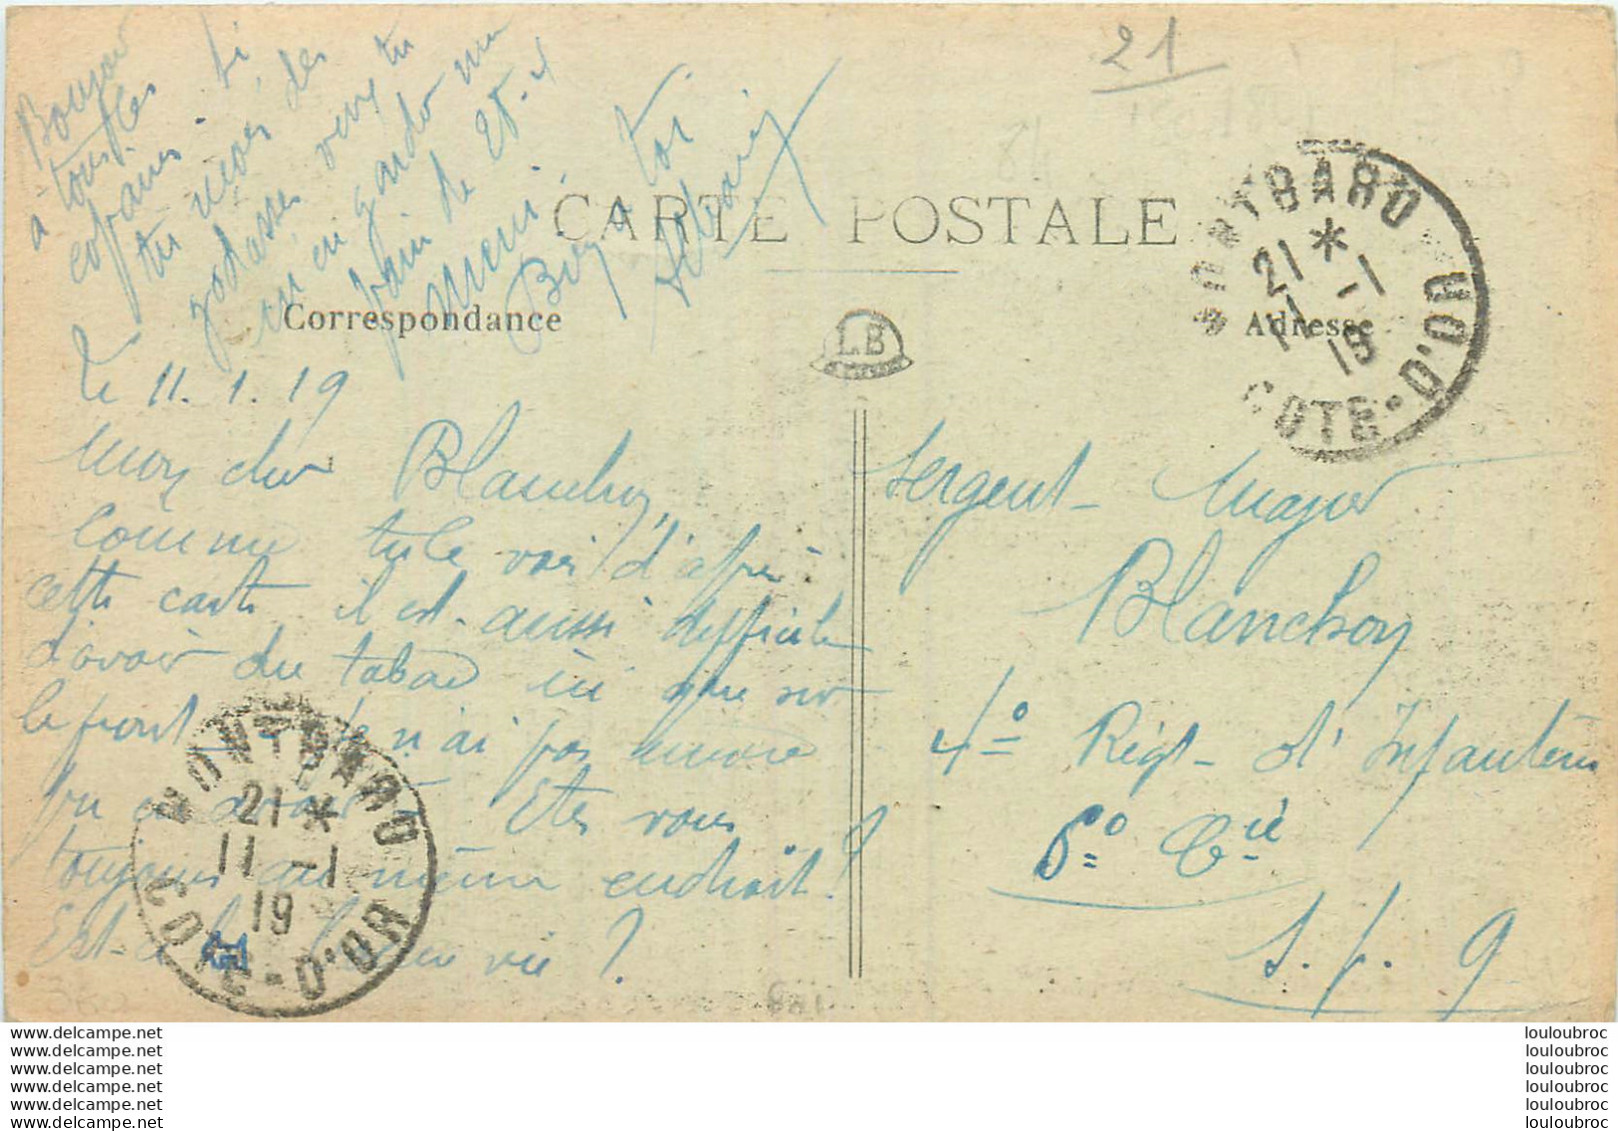 21
Bonjour
à tous les
copains. Si
tu des
godasses veux tu
m'en garde une
paire de 28.4
merci.
Bien à toi
CARTE POSTALE
Correspondance
Adresse
LB
MONTBARD
21 *
11 -1
19
COTE-D'OR
Le 11.1.19
Mon cher Blanchon,
Comme tu le vois d'après
cette carte il est aussi difficile
d'avoir du tabac ici que sur
le front. Je n'ai pas encore
pu en avoir. Etes vous
toujours au même endroit?
Est-ce la bonne vie?
MONTBARD
21 *
11 -1
19
COTE-D'OR
Sergent-Major
Blanchon
4° Régt d'Infanterie
6° Cie
S.P. 9
www.delcampe.net
www.delcampe.net
www.delcampe.net
www.delcampe.net
www.delcampe.net
www.delcampe.net
louloubroc
louloubroc
louloubroc
louloubroc
louloubroc
louloubroc